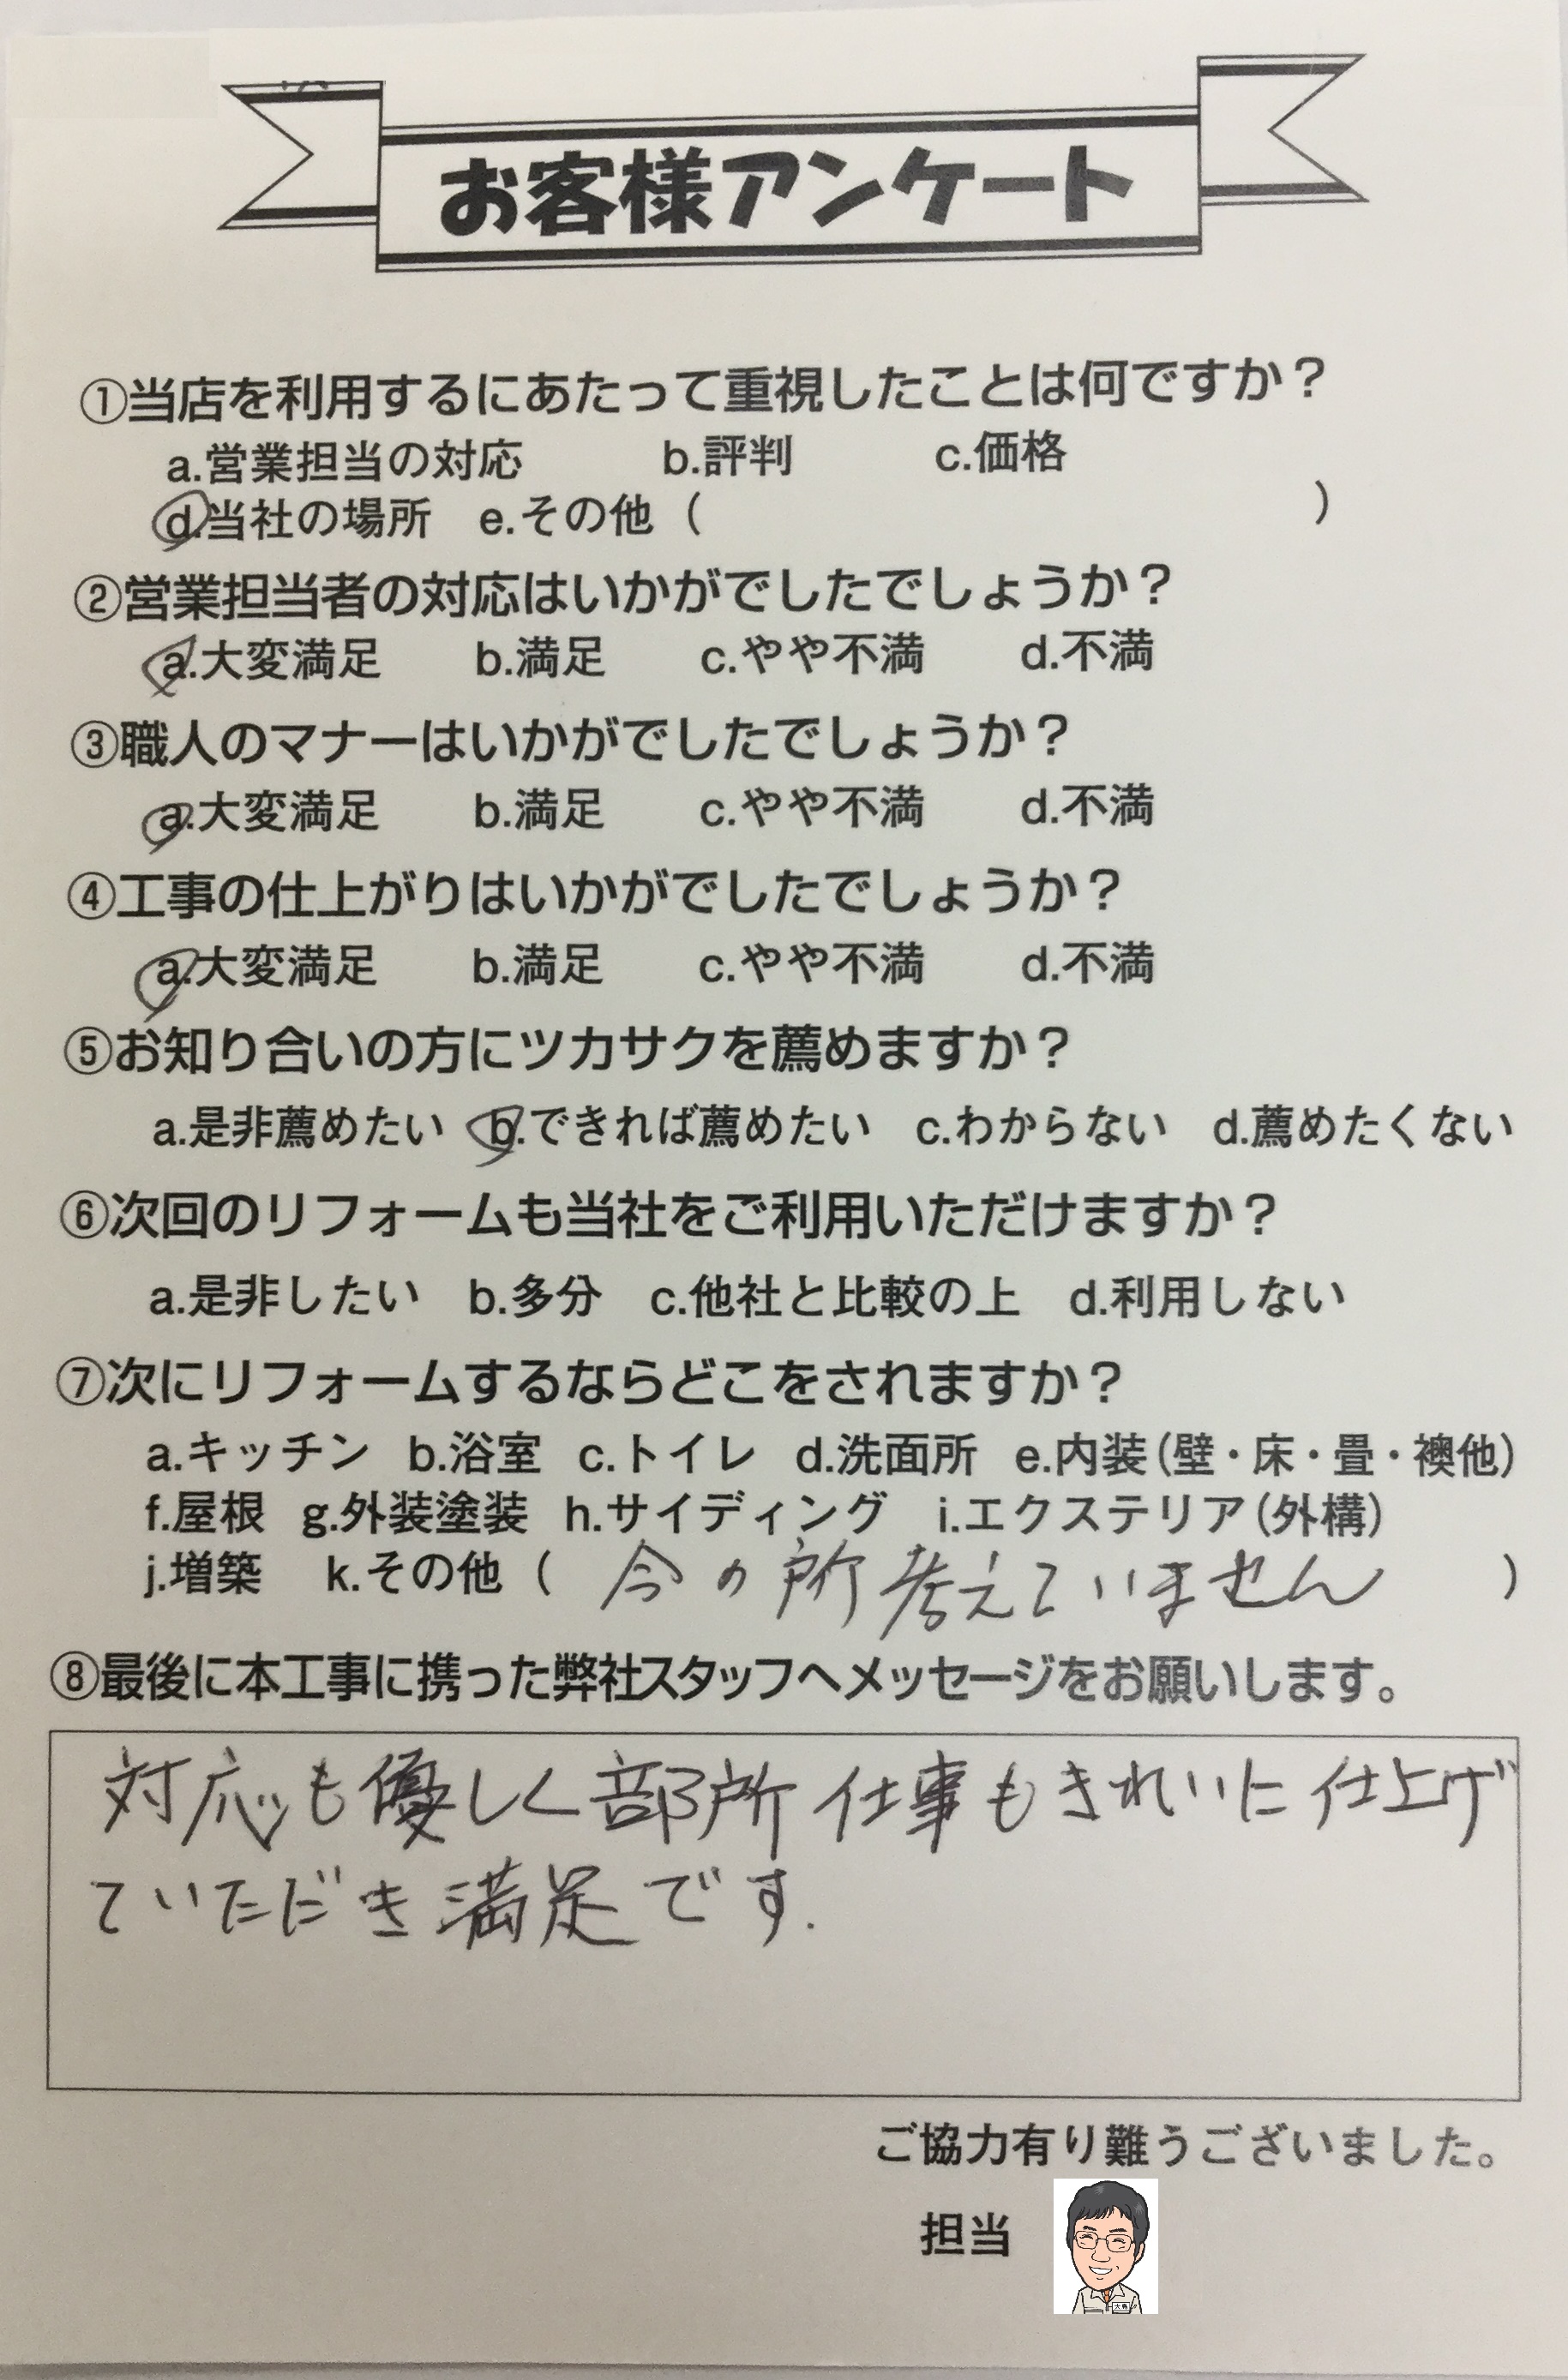 お客様アンケート
①当店を利用するにあたって重視したことは何ですか？
a.営業担当の対応 b.評判 c.価格
d.当社の場所 e.その他（ ）
②営業担当者の対応はいかがでしたでしょうか？
a.大変満足 b.満足 c.やや不満 d.不満
③職人のマナーはいかがでしたでしょうか？
a.大変満足 b.満足 c.やや不満 d.不満
④工事の仕上がりはいかがでしたでしょうか？
a.大変満足 b.満足 c.やや不満 d.不満
⑤お知り合いの方にツカサクを薦めますか？
a.是非薦めたい b.できれば薦めたい c.わからない d.薦めたくない
⑥次回のリフォームも当社をご利用いただけますか？
a.是非したい b.多分 c.他社と比較の上 d.利用しない
⑦次にリフォームするならどこをされますか？
a.キッチン b.浴室 c.トイレ d.洗面所 e.内装（壁・床・畳・襖他）
f.屋根 g.外装塗装 h.サイディング i.エクステリア（外構）
j.増築 k.その他（ 今の所考えていません ）
⑧最後に本工事に携った弊社スタッフへメッセージをお願いします。
対応も優しく部所仕事もきれいに仕上げ
ていただき満足です.
ご協力有り難うございました。
担当